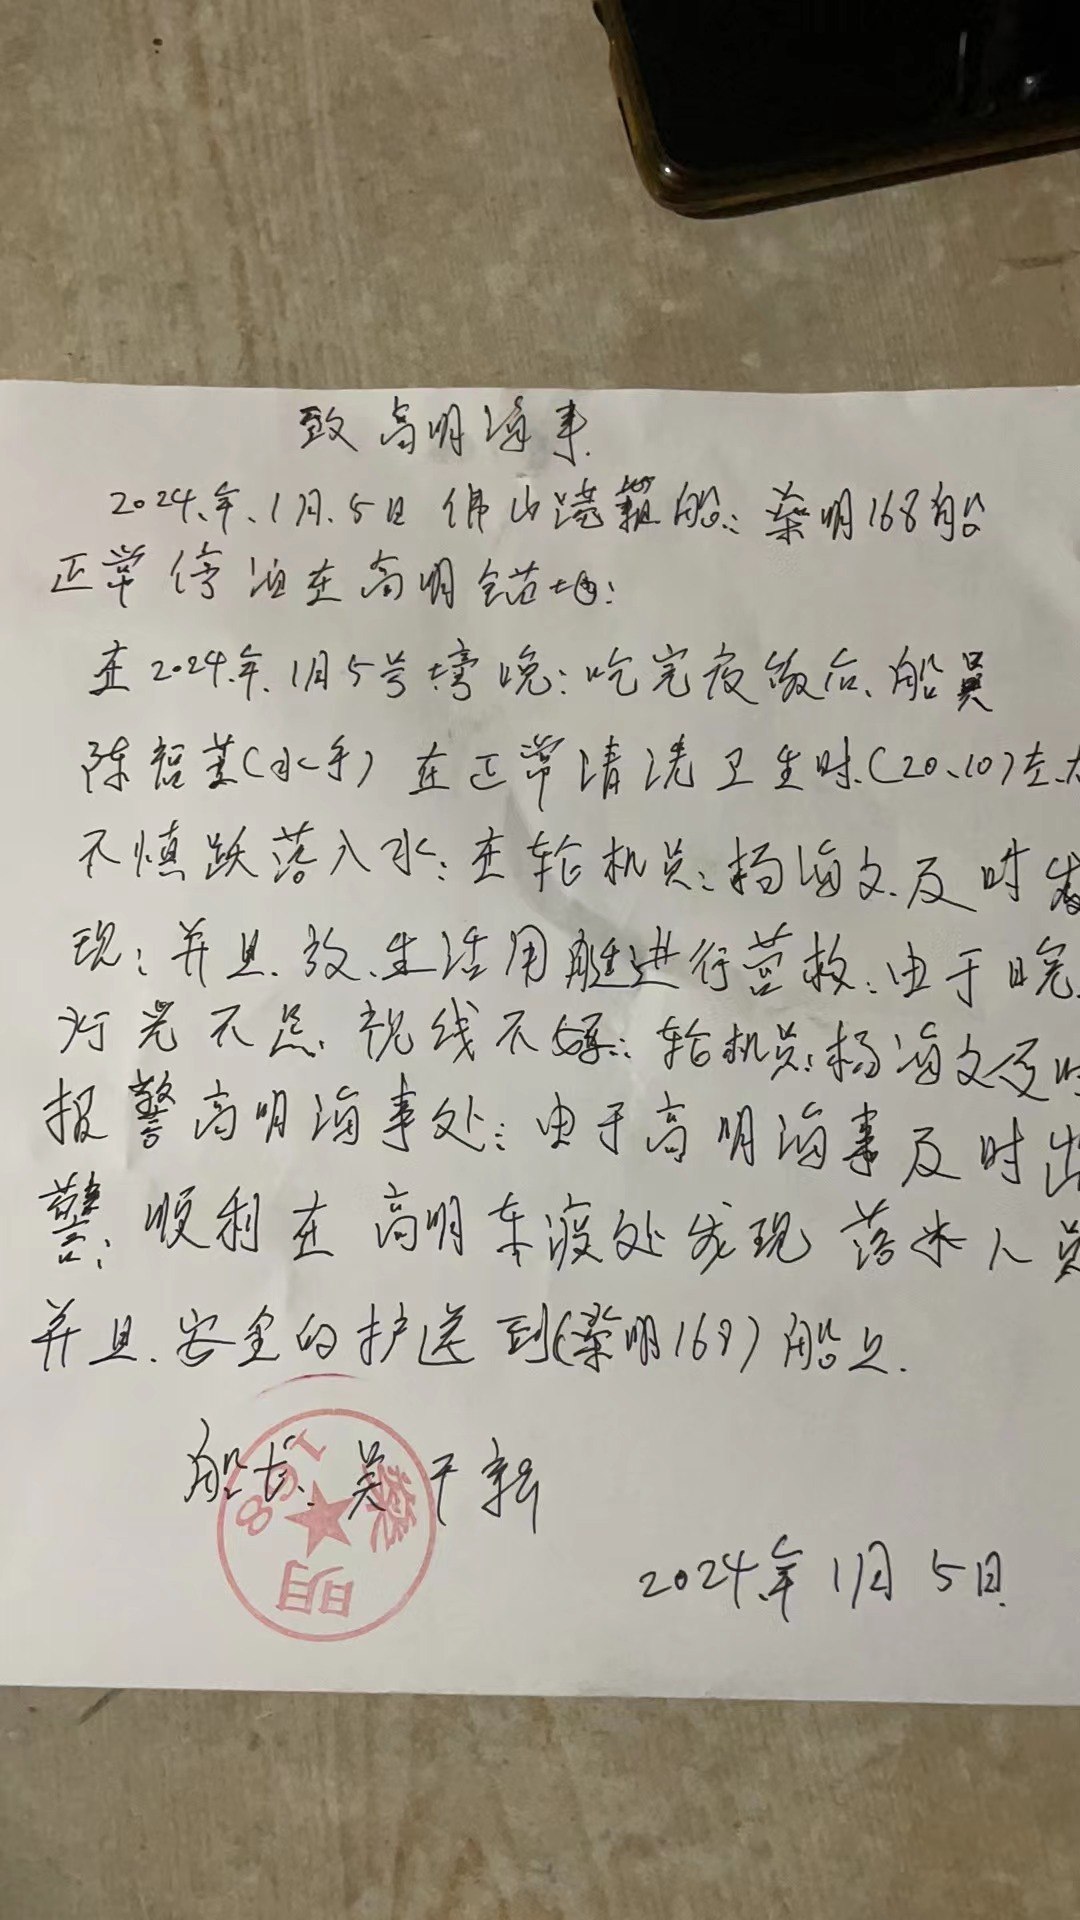 致高明海事
2024.年.1月.5日 佛山港籍船:荣明168船
正常停泊在高明锚地:
在2024.年.1月5号塝晚:吃完夜饭后、船员
陈 (水手) 在正常清洗卫生时.(20、10)左、右
不慎跌落入水:在轮机员:杨海文.及时发
现:并且.放.生活用艇进行营救:由于晚.
灯光不足.视线不好:轮机员:杨海文及时
报警高明海事处:由于高明海事及时出
警:顺利在高明车渡处发现落水人员
并且.安全的护送到(荣明168)船上.
船长:吴干
2024.年1月5日.
荣明168